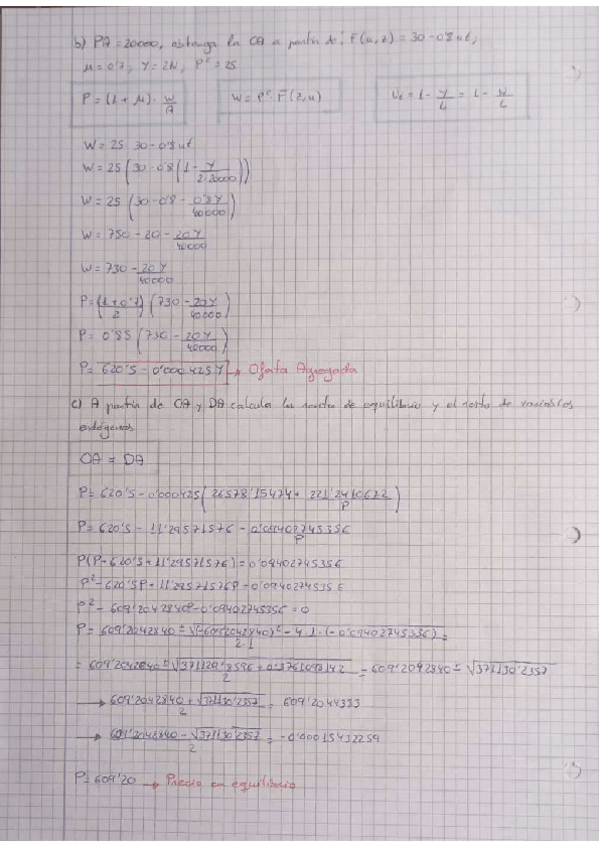 b) PA = 20000, obtenga la OA a partir de: F(u,z) = 30 - 0'8 ut,
μ = 0'7, Y = 2N, Pᵉ = 25
P = (1 + μ) · W/A
W = Pᵉ · F(z,u)
Ut = 1 - Y/L = 1 - N/L
W = 25 30 - 0'8 ut
W = 25 (30 - 0'8 (1 - Y/2·20000))
W = 25 (30 - 0'8 - 0'8Y/40000)
W = 750 - 20 - 20Y/40000
W = 730 - 20Y/40000
P = (1+0'7)/2 (730 - 20Y/40000)
P = 0'85 (730 - 20Y/40000)
P = 620'5 - 0'000425Y → Oferta Agregada
c) A partir de OA y DA calcula la renta de equilibrio y el resto de variables
endógenas
OA = DA
P = 620'5 - 0'000425 (26578'15474 + 221'2410672/P)
P = 620'5 - 11'29571576 - 0'09402745356/P
P(P - 620'5 + 11'29571576) = 0'09402745356
P² - 620'5P + 11'29571576P - 0'09402745356
P² - 609'2042840P - 0'09402745356 = 0
P = 609'2042840 ± √(-609'2042840)² - 4·1·(-0'09402745356) / 2·1 =
= 609'2042840 ± √371129'8596 + 0'3761098142 / 2 = 609'2042840 ± √371130'2357
→ 609'2042840 + √371130'2357 / 2 = 609'2044333
→ 609'2042840 - √371130'2357 / 2 = -0'00015432259
P = 609'20 → Precio en equilibrio